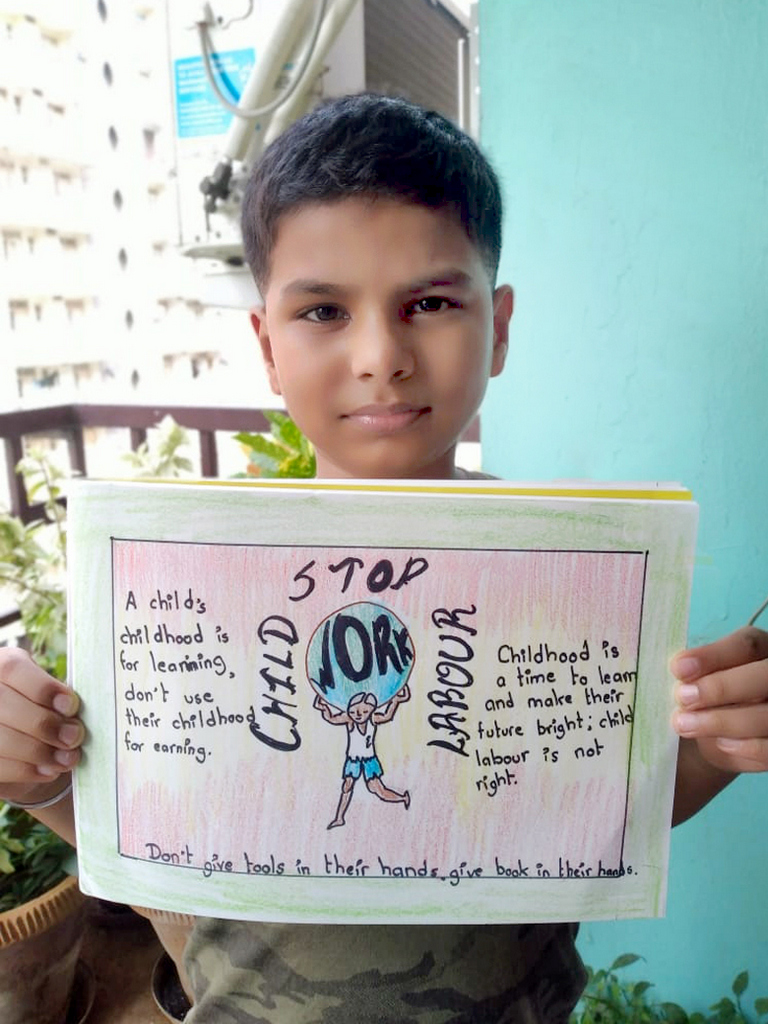 STOP
CHILD
WORK
LABOUR
A child's
childhood is
for learning,
don't use
their childhood
for earning.
Childhood is
a time to learn
and make their
future bright; child
labour is not
right.
Don't give tools in their hands, give book in their hands.